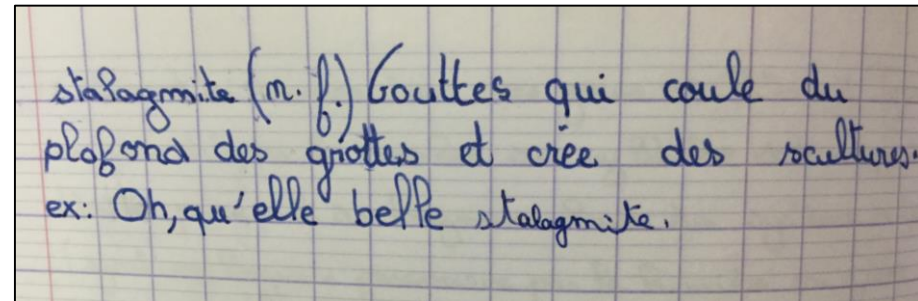 stalagmite (n. f.) Gouttes qui coule du
plofond des grottes et crée des scultures.
ex: Oh, qu'elle belle stalagmite.